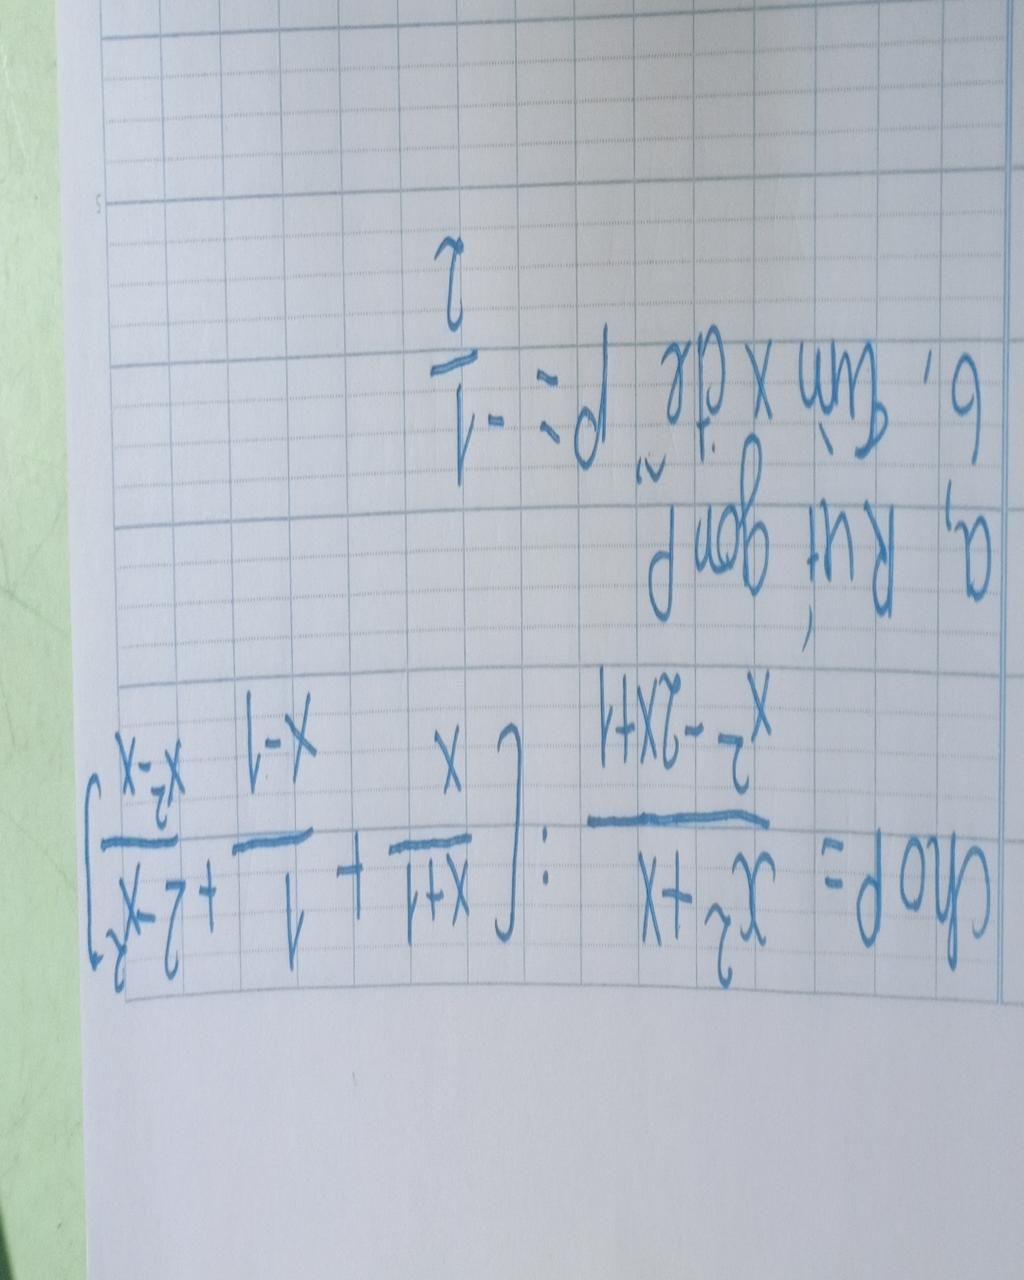 Cho P = (x² + x)/(x² - 2x + 1) : [(x+1)/x + 1/(x-1) + (2-x²)/(x²-x)]
a, Rút gọn P
b, Tìm x để P = -1/2